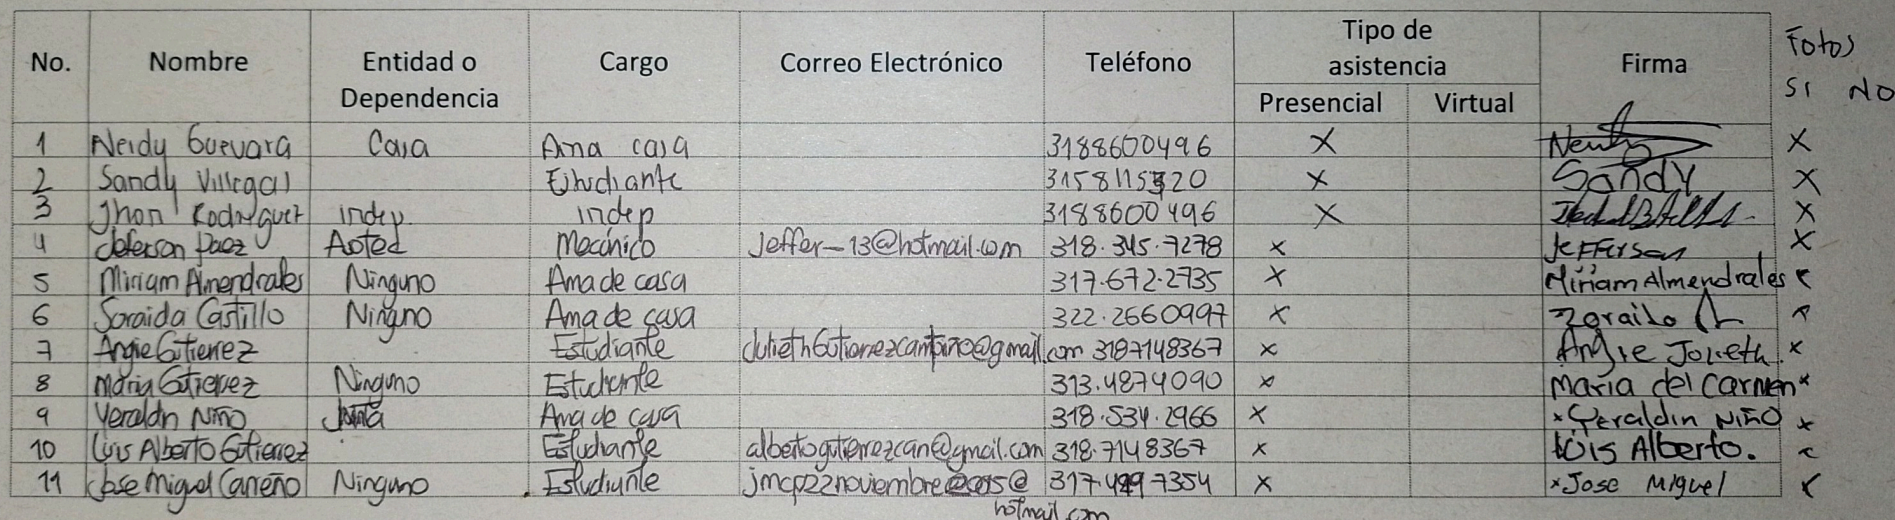 No. Nombre Entidad o Dependencia Cargo Correo Electrónico Teléfono Tipo de asistencia Presencial Virtual Firma Fotos SI NO
1 Neidy Guevara Casa Ama casa 3188600496 X Neidy X
2 Sandy Villegas Estudiante 3158115320 X Sandy X
3 Jhon Rodriguez indep. indep 3188600496 X X
4 Jeferson Paez Aoted Mecánico Jeffer-13@hotmail.com 318.345.7278 X Jefferson X
5 Miriam Almendrales Ninguno Ama de casa 317.672.2735 X Miriam Almendrales x
6 Soraida Castillo Ninguno Ama de casa 322.2660997 X Zoraida x
7 Angie Gutierrez Estudiante 3187148367 x Angie Julieth x
8 Maria Gutierrez Ninguno Estudiante 313.4874090 x Maria del Carmen x
9 Yeraldn Niño Junta Ama de casa 318.534.2966 X x Yeraldin Niño x
10 Luis Alberto Gutierrez Estudiante albertogutierrezcan@gmail.com 318.7148367 x Luis Alberto. x
11 Jose Miguel Careño Ninguno Estudiante 7354 X x Jose Miguel x
hotmail.com